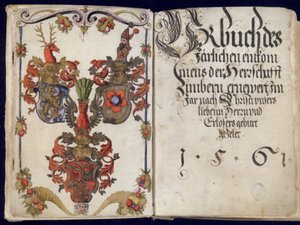 Urbuch des
järlichen einkom
mens der Herrschafft
Zimbern ernewert im
Jar nach Christi unsers
liebenn Herrn und
Erlösers geburt
1561